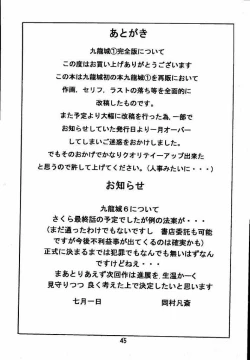 あとがき
九龍城①完全版について
この度はお買い上げありがとうございます
この本は九龍城初の本九龍城①を再販において
作画、セリフ、ラストの落ち等を全面的に
改稿したものです。
また予定より大幅に改稿を行った為、一部で
お知らせしていた発行日より一月オーバー
してしまいご迷惑をおかけしました。
でもそのおかげでかなりクオリテイーアップ出来た
と思うので許して上げてください。(人事みたいに・・・)
お知らせ
九龍城6について
さくら最終話の予定でしたが例の法案が・・・
(まだ通ったわけでもないですし 書店委託も可能
ですが今後不利益事が出てくるのは確実かも)
正式に決まるまでは犯罪でもなんでも無いはずなん
ですけどねえ・・・
まあとりあえず次回作は進展を生温かーく
見守りつつ 良く考えた上で決定したいと思います
七月一日 岡村凡斎
45